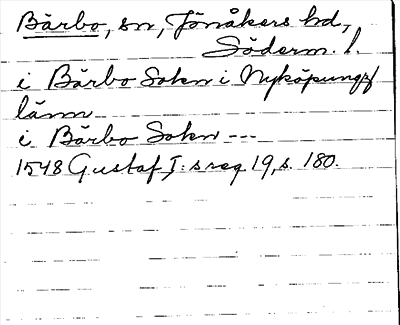 Bärbo, sn, Jönåkers hd,
Söderm. l.
i Bärbo Sokn i Nyköpungz
länn
i Bärbo Sokn ---
1548 Gustaf I: s reg. 19, s. 180.